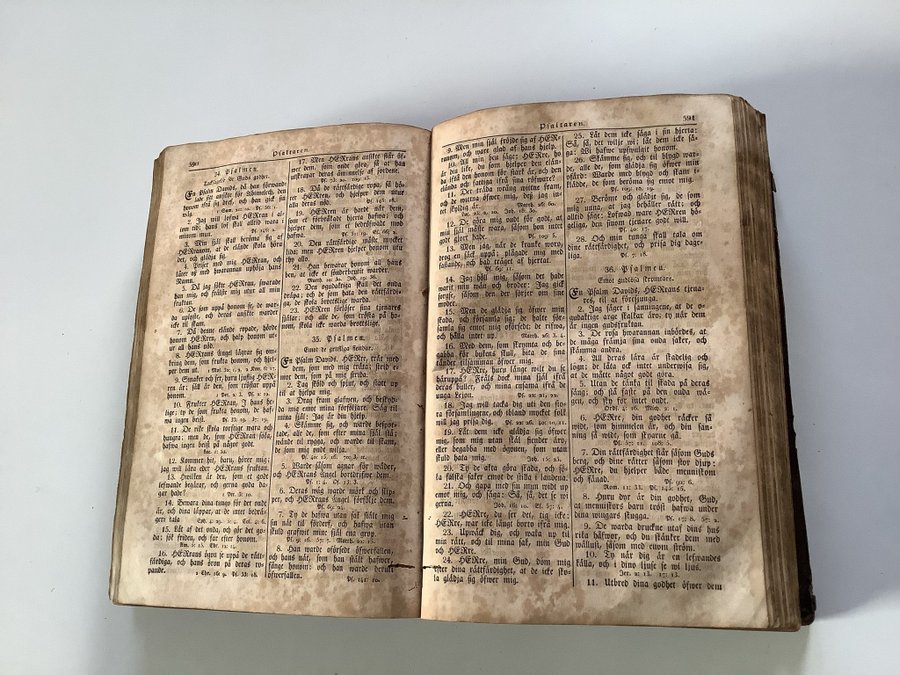 590
Psaltaren.
34. Psalmen.
En Psalm Davids, då han förwand-
2. Jag will lofwa HERran i al-
minom mun.
3. Min själ skall berömma sig af
HERranom, at de elände skola höra
4. Priser med mig HERran, och
låter oß med hwarannan uphöja hans
Namn.
5. Då jag sökte HERran, swarade
6. De som uppå honom se, de war-
7. Då denne elände ropade, hörde
8. HERrans Ängel lägrar sig om-
kring dem, som frukta honom, och hjel-
per dem ut.
9. Smaker och ser, huru ljuflig HER-
ren är; säll är den, som tröstar uppå
honom.
10. Frukter HERran, I hans he-
lige: ty de som frukta honom, de haf-
wa ingen brist.
11. De rike skola
hungra; men de, som HERran söka,
hafwa ingen brist på något godt.
12. Kommer hit, barn, hörer mig;
jag will lära eder HERrans fruktan.
13. Hwilken är den, som
lefwande begärar, och gerna goda da-
gar hade?
14. Bewara dina tungo för det onda
är, och dina läppar, at de intet bedrä-
geri tala.
15. Låt af det onda, och gör det go-
da; sök friden, och far efter honom.
16. HERrans ögon se uppå de rätt-
färdiga, och hans öron på deras ro-
pande.
17. Men HERrans ansigte står öf-
wer dem, som ondt göra, så at han
utrotar deras åminnelse af jordene.
18. Då de rättfärdige ropa, så hö-
rer HERren, och hjelper dem utur
alla deras nöd.
19. HERren är hardt när dem,
som ett förkrossadt hjerta hafwa; och
hjelper dem, som ett bedröfwadt mod
hafwa.
20. Den rättfärdige måste mycket
lida; men HERren hjelper honom utu
thy allo.
21. Han bewarar honom all hans
ben, at icke et sönderbrutit warder.
22. Den ogudaktiga skall det onda
dräpa; och de som hata den rättfärdi-
ga, de skola brottslige warda.
23. HERren förlösar sina tjenares
själar; och alle de, som trösta på ho-
nom, skola icke warda brottslige.
35. Psalmen.
En Psalm Davids. HERre, träta med
dem, som med mig träta; strid e-
mot dem, som på mig strida.
2. Tag sköld och spjut, och statt up
til at hjelpa mig.
3. Drag fram glafwen, och beskyd-
da mig emot mina förföljare. Säg til
mina själ: Jag är din hjelp.
4. Skämme sig, och warde bespot-
tade, alle de, som efter mina själ stå;
wände til rygga, och warde til skam,
de som mig ondt wilja.
5. Warde såsom agnar för wäder,
och HERrans Ängel bortdrifwe dem.
6. Deras wäg warde mörk och slip-
per, och HERrans Ängel förfölje dem.
7. Ty de hafwa utan sak stält mig
sin nät til förderf, och hafwa utan
skuld grafwit mine själ ena grop.
8. Han warde oförsedt öfwerfallen,
och hans nät, som han stält hafwer,
fånge honom; och han warde deruti
öfwerfallen.
Psaltaren.
591
9. Men min själ fröjde sig af HER-
ranom, och ware glad af hans hjelp.
10. All min ben säge: HERre, ho
är din like, du som hjelper den elända
ifrån den som honom för stark är, och den
elända och fattiga ifrå sin röfware?
11. Det träda wrång wittne fram,
och de wittna öfwer mig, det jag in-
tet skyldig är.
12. De göra mig ondt för godt, at
min själ måste wara, såsom den intet
godt gjort hade.
13. Men jag, när de kranke woro,
drog en säck uppå; plågade mig med
fastande, och bad träget af hjertat.
14. Jag höll mig, såsom det hade
warit min wän och broder; jag gick
sorgse, såsom den der sörjer om sine
moder.
15. Men de glädja sig öfwer min
skada, och församla sig; de halte för-
samla sig emot mig oförsedt; de rifwa,
och hålla intet up.
16. Med dem, som skrymta och be-
gabba för bukens skull, bita de sina
tänder tillsamman öfwer mig.
17. HERre, huru länge wilt du se
häruppå? Fräls dock mina själ ifrå
deras buller, och mina ensama ifrå de
unga Lejon.
18. Jag will tacka dig uti den sto-
ra församlingene, och ibland mycket folk
will jag prisa dig.
19. Låt dem icke glädja sig öfwer
mig, som mig utan skäl fiender äro,
eller begabba med ögonen, som utan
skuld hata mig.
20. Ty de akta göra skada, och sö-
ka falska saker emot de stilla i landena.
21. Och gapa med sin mun widt up
emot mig, och säga: Så, så, det se wi
gerna.
22. HERre, du ser det, tig icke;
HERre, war icke långt borto ifrå mig.
23. Upwäck dig, och waka up til
min rätt, och til mina sak, min Gud
och HERre.
24. HERre, min Gud, döm mig
efter dina rättfärdighet, at de icke sko-
la glädja sig öfwer mig.
25. Låt dem icke säga i sin hjerta:
Så, så, det wilje wi; låt dem icke sä-
ga: Wi hafwe upswulgit honom.
26. Skämme sig, och til blygd war-
de, alle de, som glädja sig öfwer min
ofärd: Warde med blygd och skam i-
klädde, som beröma sig emot mig.
27. Beröme och glädje sig, de som
mig unna, at jag behåller rätt; och
alltid säge: Lofwad ware HERren hö-
geliga, den sinom tjenare godt will.
28. Och min tunga skall tala om
dine rättfärdighet, och prisa dig dage-
liga.
36. Psalmen.
Emot gudslöse skrymtare.
En Psalm Davids, HERrans tjena-
res, til at föresjunga.
2. Jag säger i sanningene, at de o-
gudaktige args skalkar äro; ty när dem
är ingen gudsfruktan.
3. De rosa hwarannan inbördes, at
de måga främja sina onda saker, och
skämma andra.
4. All deras lära är skadelig och
logn; de låta ock intet underwisa sig,
at de måtte något godt göra.
5. Utan de tänka til skada på deras
säng; och stå faste på den onda wä-
gen, och sky för intet ondt.
6. HERre, din godhet räcker så
widt, som himmelen är, och din san-
ning så widt, som skyarne gå.
7. Din rättfärdighet står såsom Guds
berg, och dine rätter såsom stor djup:
HERre, du hjelper både menniskom
och fänad.
8. Huru dyr är din godhet, Gud,
at menniskors barn tröst hafwa under
dina wingars skugga.
9. De warda druckne utaf dins hus
rika håfwor, och du skänker dem med
wällust, såsom med enom ström.
10. Ty när dig är en lefwandes
källa, och i dino ljuse se wi ljuset.
11. Utbred dina godhet öfwer dem